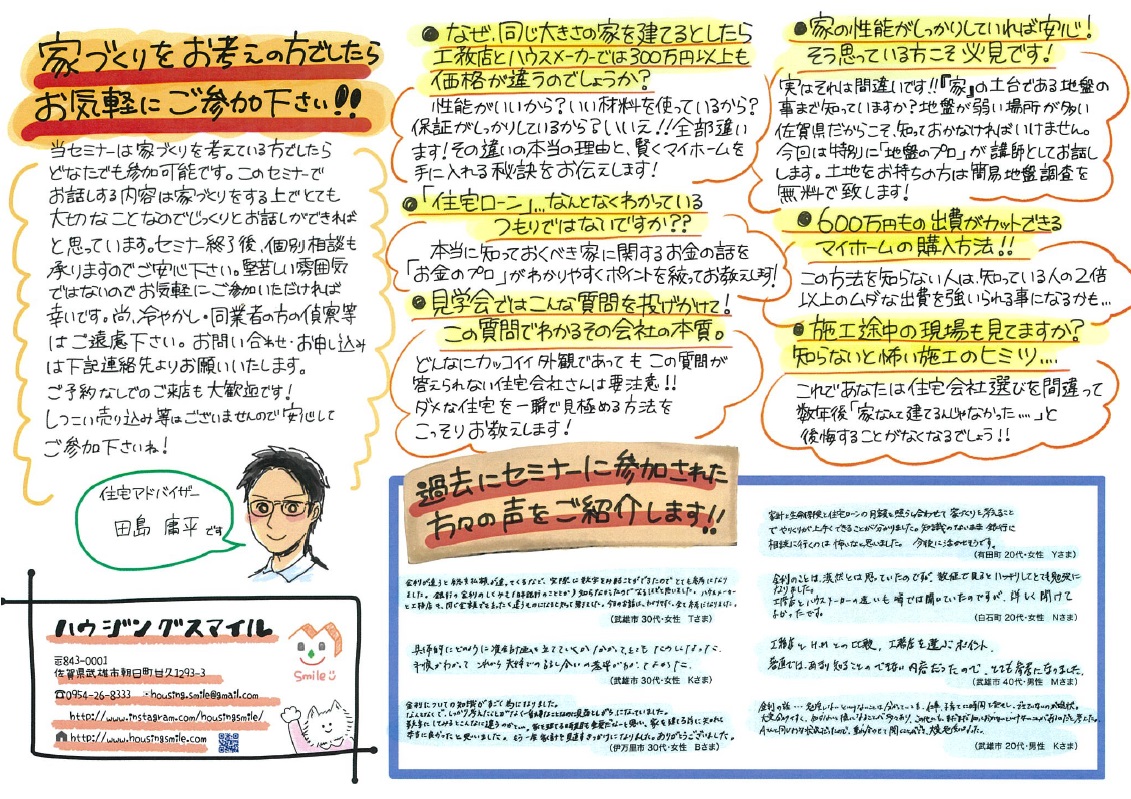 家づくりをお考えの方でしたら
お気軽にご参加下さい!!
当セミナーは家づくりを考えている方でしたら
どなたでも参加可能です。このセミナーで
お話しする内容は家づくりをする上でとても
大切なことなのでじっくりとお話しができれば
と思っています。セミナー終了後、個別相談も
承りますのでご安心下さい。堅苦しい雰囲気
ではないのでお気軽にご参加いただければ
幸いです。尚、冷やかし・同業者の方の偵察等
はご遠慮下さい。お問い合わせ・お申し込み
は下記連絡先よりお願いいたします。
ご予約なしでのご来店も大歓迎です!
しつこい売り込み等はございませんので安心して
ご参加下さいね!
住宅アドバイザー
田島 庸平です
ハウジングスマイル
〒843-0001
佐賀県武雄市朝日町甘久1293-3
☎0954-26-8333 ・housing.smile@gmail.com
http://www.instagram.com/housingsmile/
http://www.housingsmile.com
Smile
●なぜ、同じ大きさの家を建てるとしたら
工務店とハウスメーカーでは300万円以上も
価格が違うのでしょうか?
性能がいいから?いい材料を使っているから?
保証がしっかりしているから?いいえ!!全部違い
ます!その違いの本当の理由と、賢くマイホームを
手に入れる秘訣をお伝えします!
●「住宅ローン」…なんとなくわかっている
つもりではないですか??
本当に知っておくべき家に関するお金の話を
「お金のプロ」がわかりやすくポイントを絞ってお教えします!
●見学会ではこんな質問を投げかけて!
この質問でわかるその会社の本質。
どんなにカッコイイ外観であってもこの質問が
答えられない住宅会社さんは要注意!!
ダメな住宅を一瞬で見極める方法を
こっそりお教えします!
●家の性能がしっかりしていれば安心!
そう思っている方こそ必見です!
実はそれは間違いです!!『家』の土台である地盤の
事まで知っていますか?地盤が弱い場所が多い
佐賀県だからこそ、知っておかなければいけません。
今回は特別に「地盤のプロ」が講師としてお話し
します。土地をお持ちの方は簡易地盤調査を
無料で致します!
●600万円もの出費がカットできる
マイホームの購入方法!!
この方法を知らない人は、知っている人の2倍
以上のムダな出費を強いられる事になるかも…
●施工途中の現場も見てますか?
知らないと怖い施工のヒミツ….
これであなたは住宅会社選びを間違って
数年後「家なんて建てるんじゃなかった….」と
後悔することがなくなるでしょう!!
過去にセミナーに参加された
方々の声をご紹介します!!
(武雄市 30代・女性 Tさま)
(武雄市 30代・女性 Kさま)
(伊万里市 30代・女性 Bさま)
家計と生命保険と住宅ローンの月額と照らし合わせて家づくりを考えること
でやりくりが上手くできることが分かりました。知識のないまま銀行に
相談に行くのは怖いなと思いました。今後に活かせそうです。
(有田町 20代・女性 Yさま)
金利のことは、漠然とは思っていたのですが、数値で見るとハッキリしてとても勉強に
なりました。
工務店とハウスメーカーの違いも噂では聞いていたのですが、詳しく聞けて
よかったです。
(白石町 20代・女性 Nさま)
工務店とH.Mとの比較、工務店を選ぶポイント、
普通では、あまり知ることのできない内容だったので、とても参考になりました。
(武雄市 40代・男性 Mさま)
(武雄市 20代・男性 Kさま)